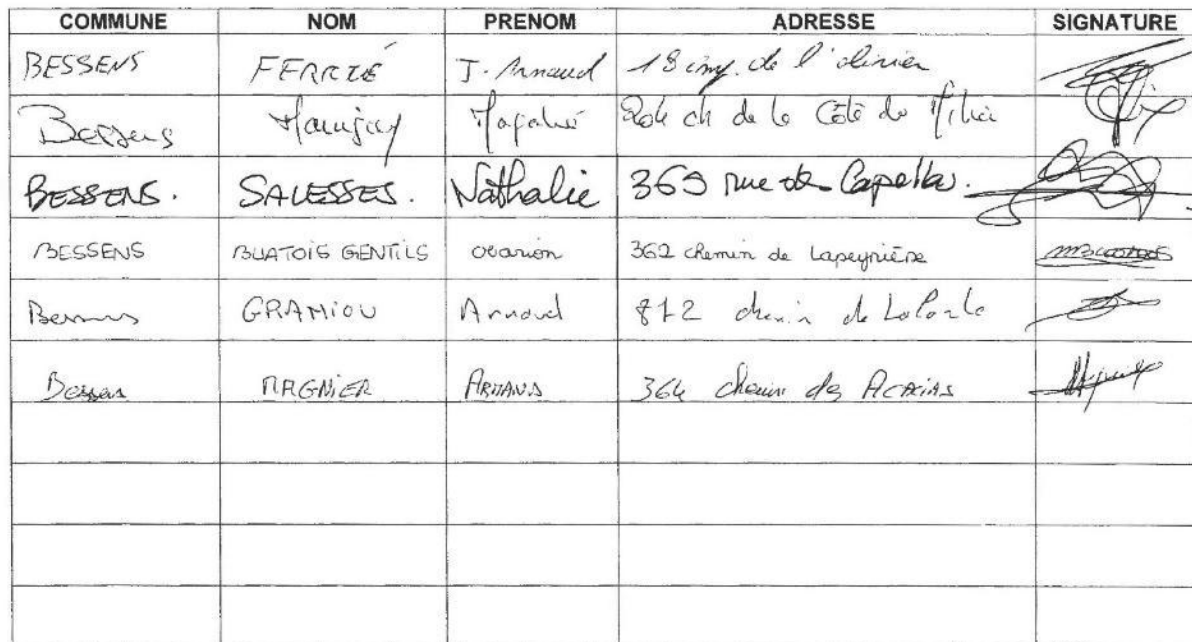 COMMUNE NOM PRENOM ADRESSE SIGNATURE
BESSENS FERRTÉ J. Arnaud 18 imp. de l'olivier
Bessens 204 ch de la Côte de
BESSENS. SALESSES. Nathalie 369 rue de Capella.
BESSENS BUATOIS GENTILS 362 chemin de Lapeyrière
Bessens GRAMIOU Arnaud 872 chemin de
Bessens MAGNIER ARMAND 364 chemin des ACACIAS